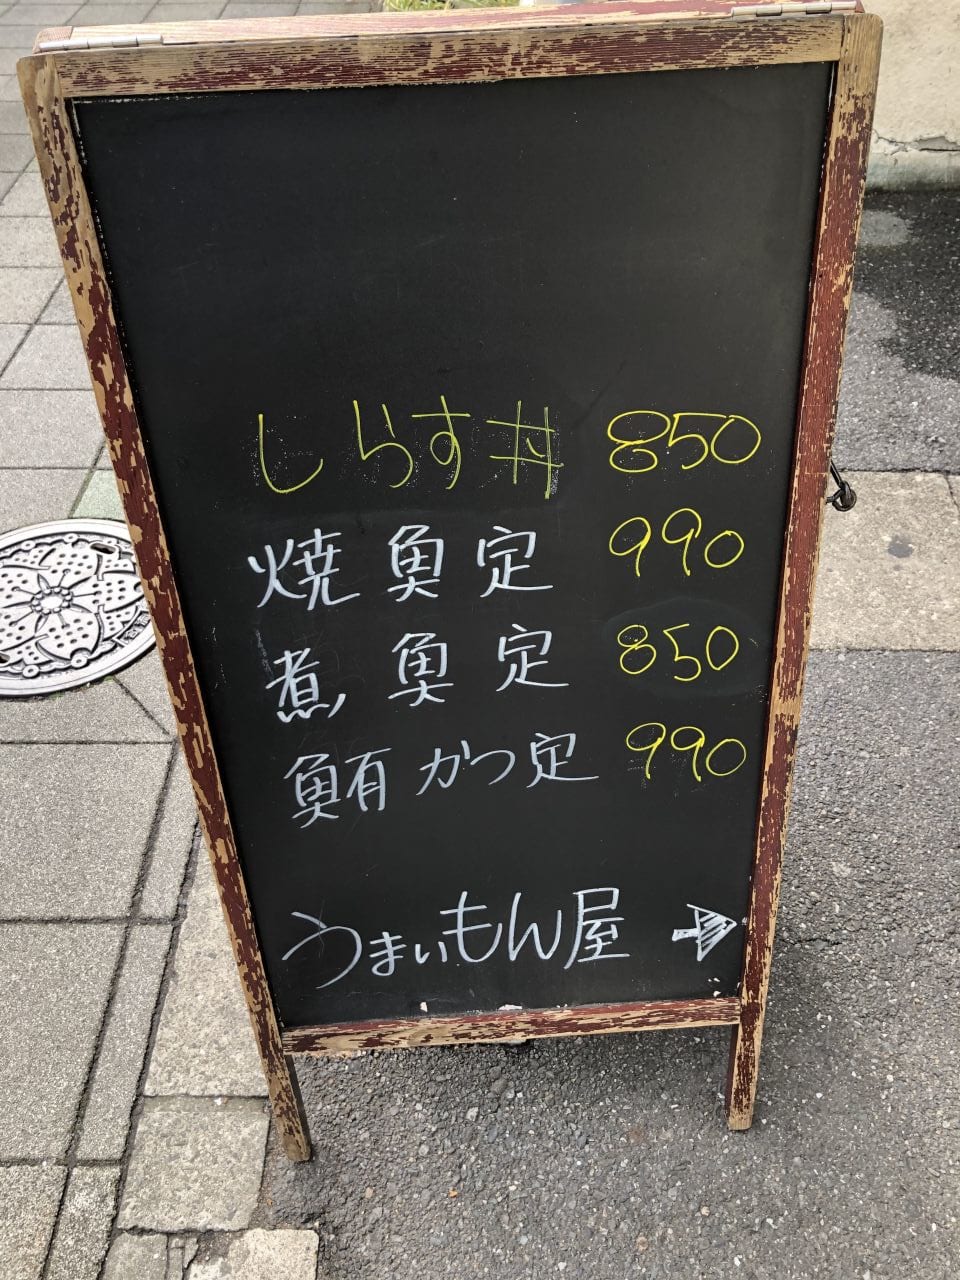 しらす丼 850
焼魚定 990
煮魚定 850
鮪かつ定 990
うまいもん屋 →